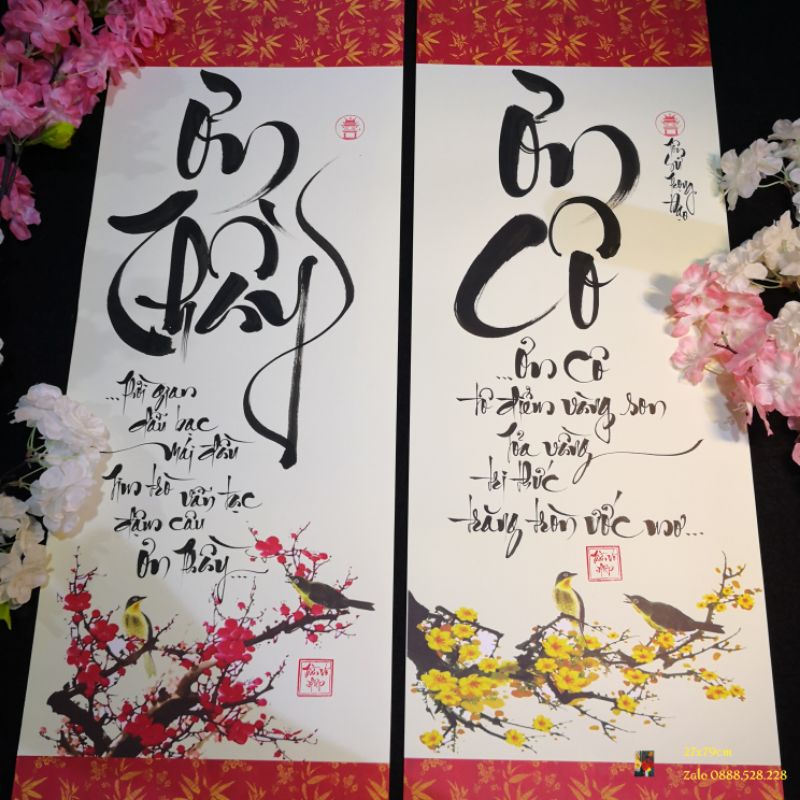 Ơn
Thầy
...Thời gian
dẫu bạc
mái đầu
Tim trò vẫn tạc
đậm câu
Ơn thầy...
Ơn
Cô
Tôn
sư
trọng
đạo
...Ơn Cô
tô điểm vàng son
Tỏa vầng
tri thức
trăng tròn ước mơ...
27x79cm
Zalo 0888.528.228